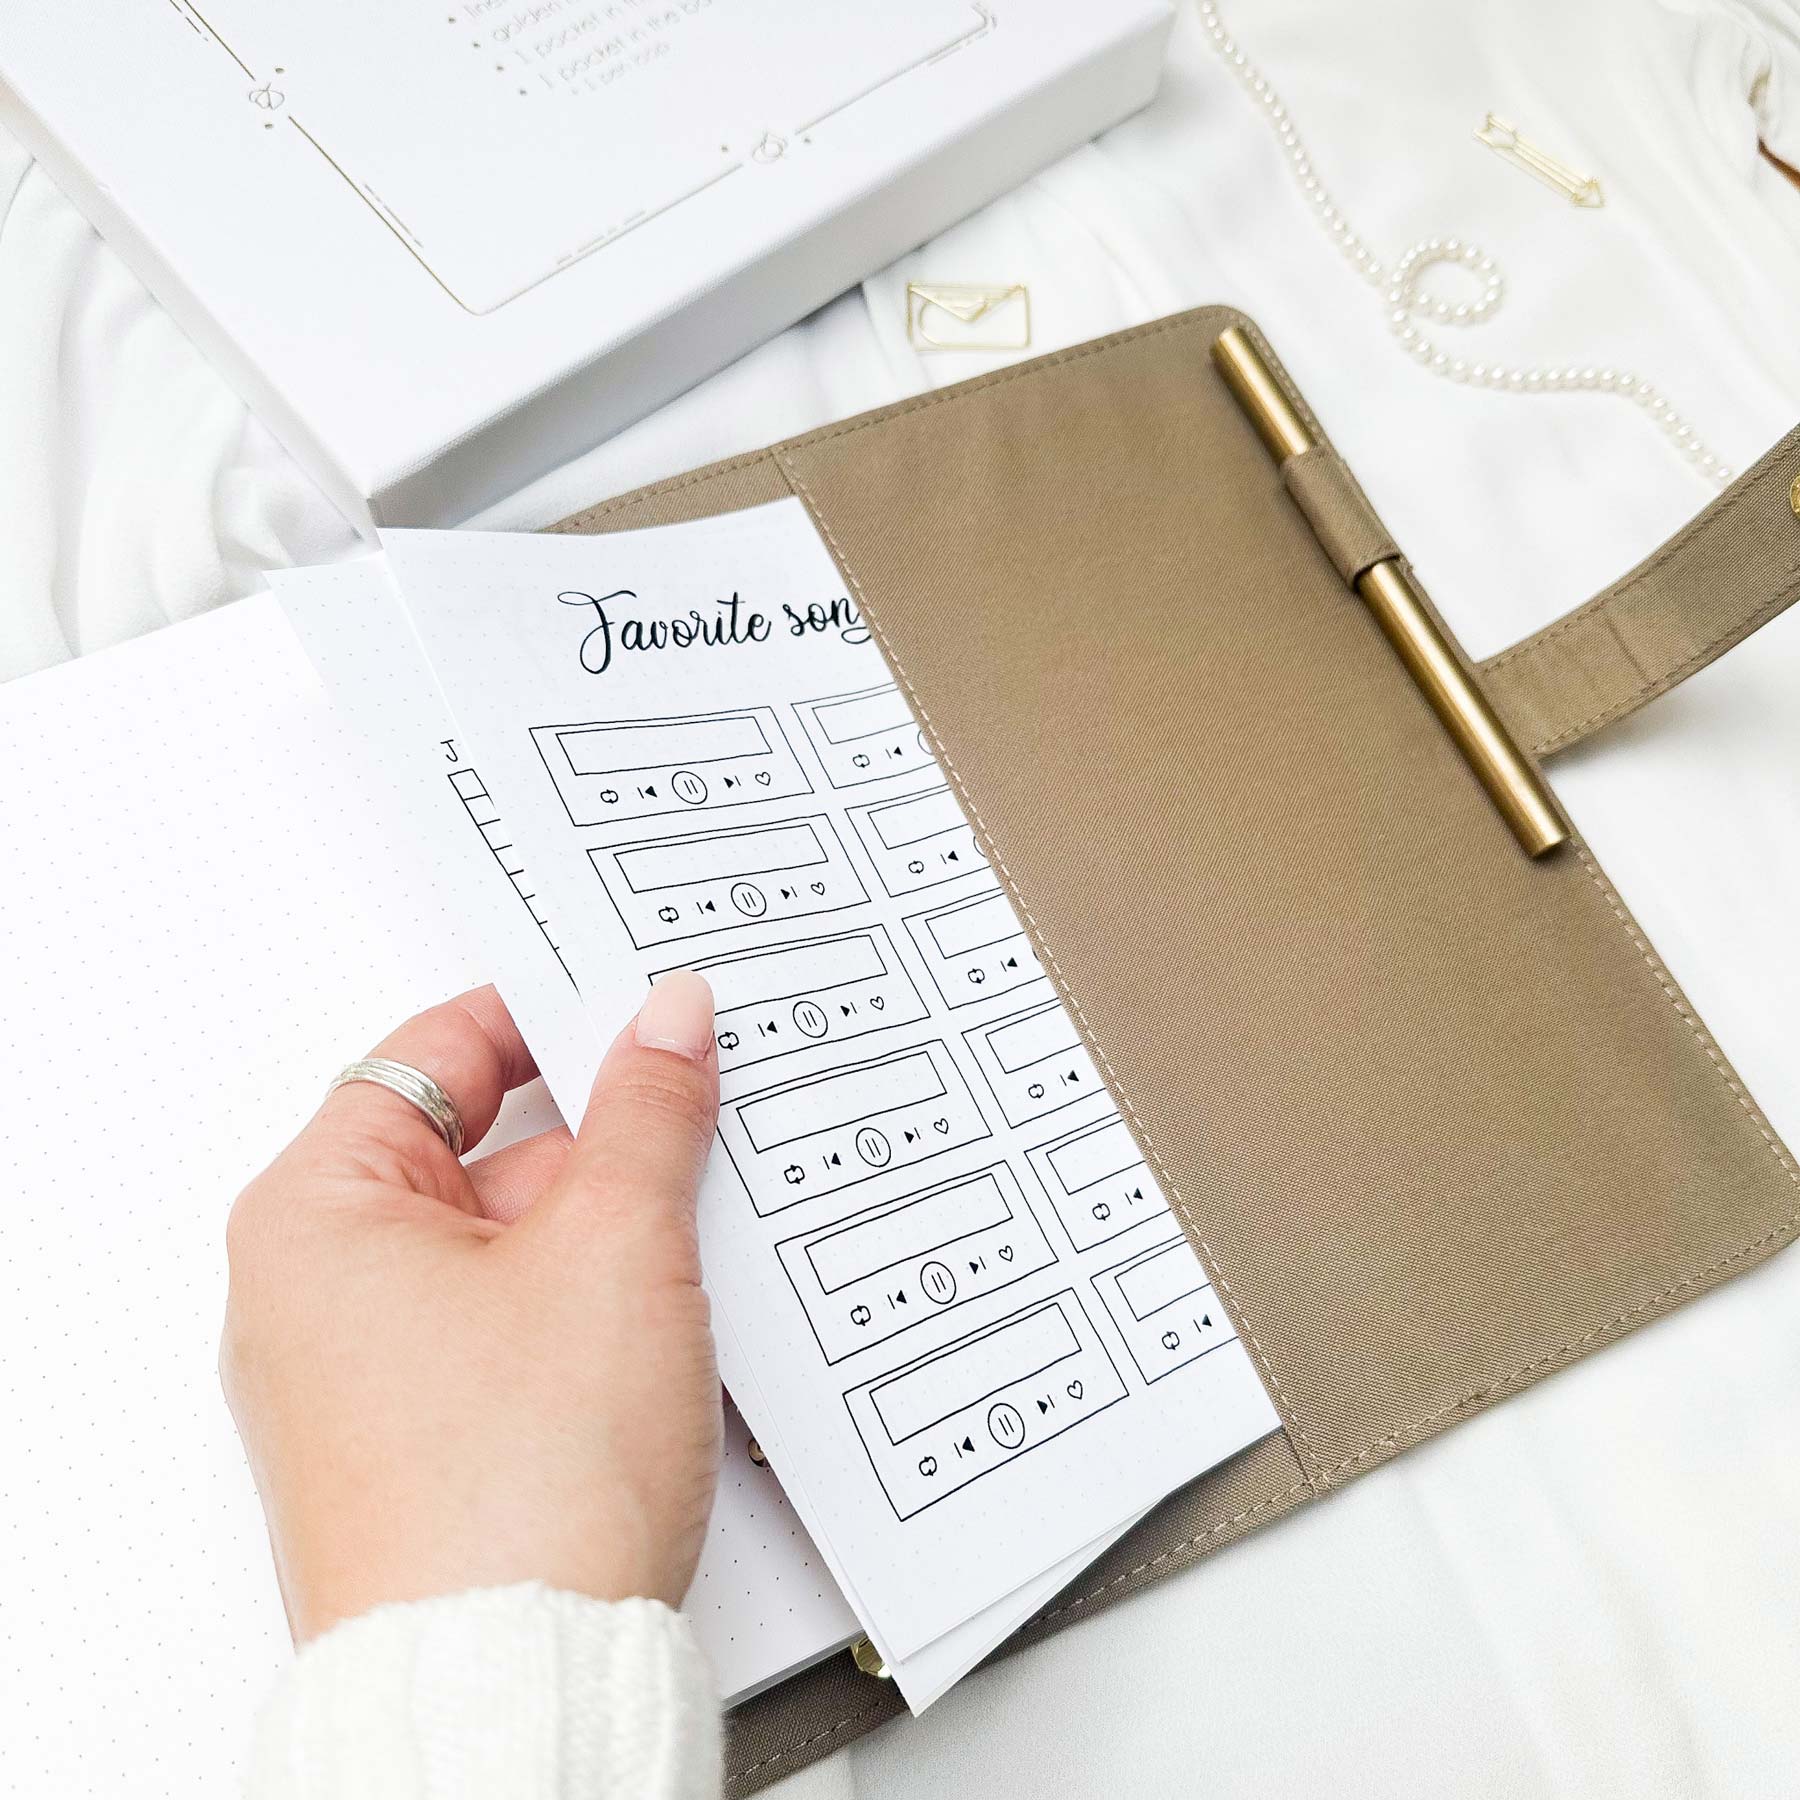 golden
1 pocket in th
1 pocket in the ba
1 pen loop
Favorite song
J